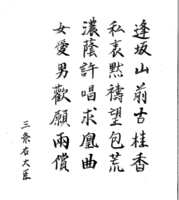 逢坂山前古桂香
私衷黙禱望包荒
濃蔭許唱求凰曲
女愛男歡願兩償
三条右大臣